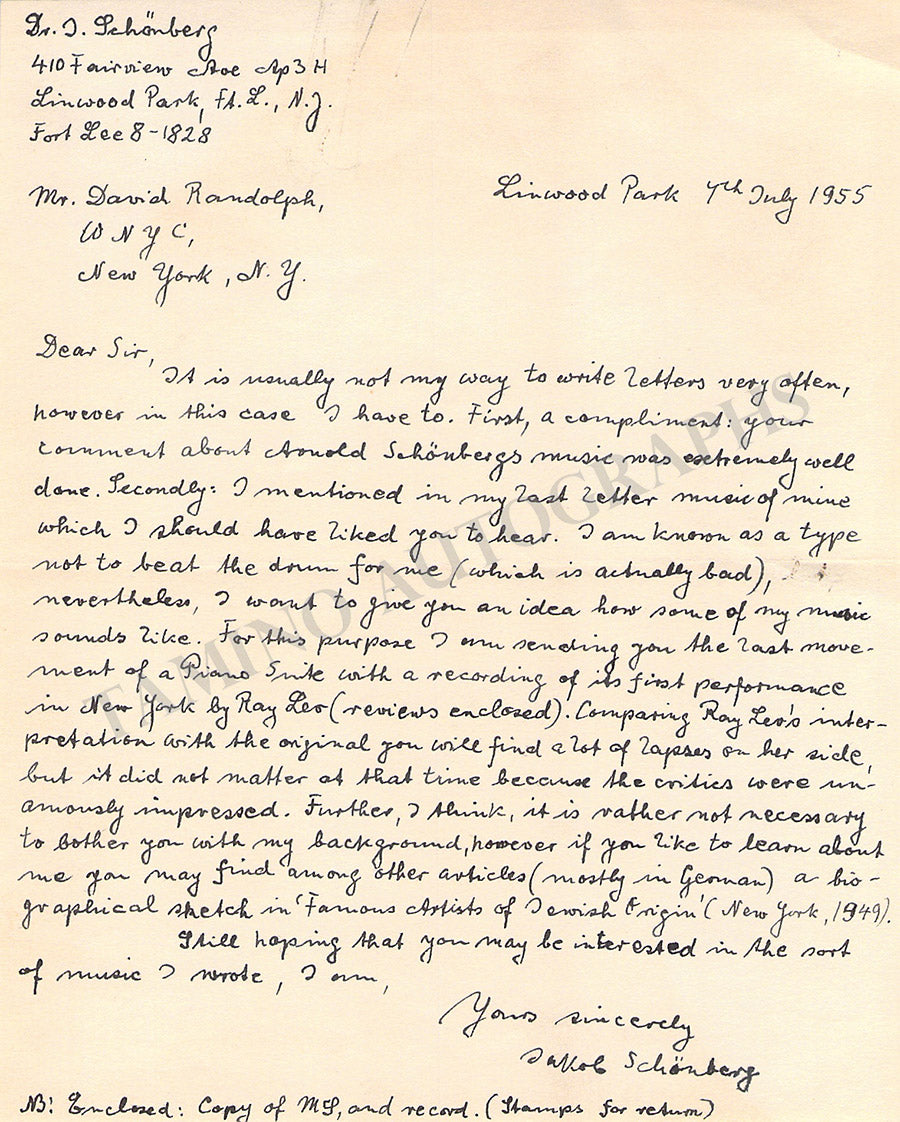 Dr. J. Schönberg
410 Fairview Ave Ap 3 H
Linwood Park, Ft. L., N.J.
Fort Lee 8-1828
Linwood Park 7th July 1955
Mr. David Randolph,
W N Y C,
New York, N. Y.
Dear Sir,
It is usually not my way to write letters very often,
however in this case I have to. First, a compliment: your
comment about Arnold Schönbergs music was extremely well
done. Secondly: I mentioned in my last letter music of mine
which I should have liked you to hear. I am known as a type
not to beat the drum for me (which is actually bad),
nevertheless, I want to give you an idea how some of my music
sounds like. For this purpose I am sending you the last move-
ment of a Piano Suite with a recording of its first performance
in New York by Ray Lev (reviews enclosed). Comparing Ray Lev's inter-
pretation with the original you will find a lot of lapses on her side,
but it did not matter at that time because the critics were un-
amously impressed. Further, I think, it is rather not necessary
to bother you with my background, however if you like to learn about
me you may find among other articles (mostly in German) a bio-
graphical sketch in 'Famous Artists of Jewish Origin' (New York, 1949).
Still hoping that you may be interested in the sort
of music I wrote, I am,
Yours sincerely
Jakob Schönberg
NB! Enclosed: Copy of MS, and record. (Stamps for return)
TAMINO AUTOGRAPHS